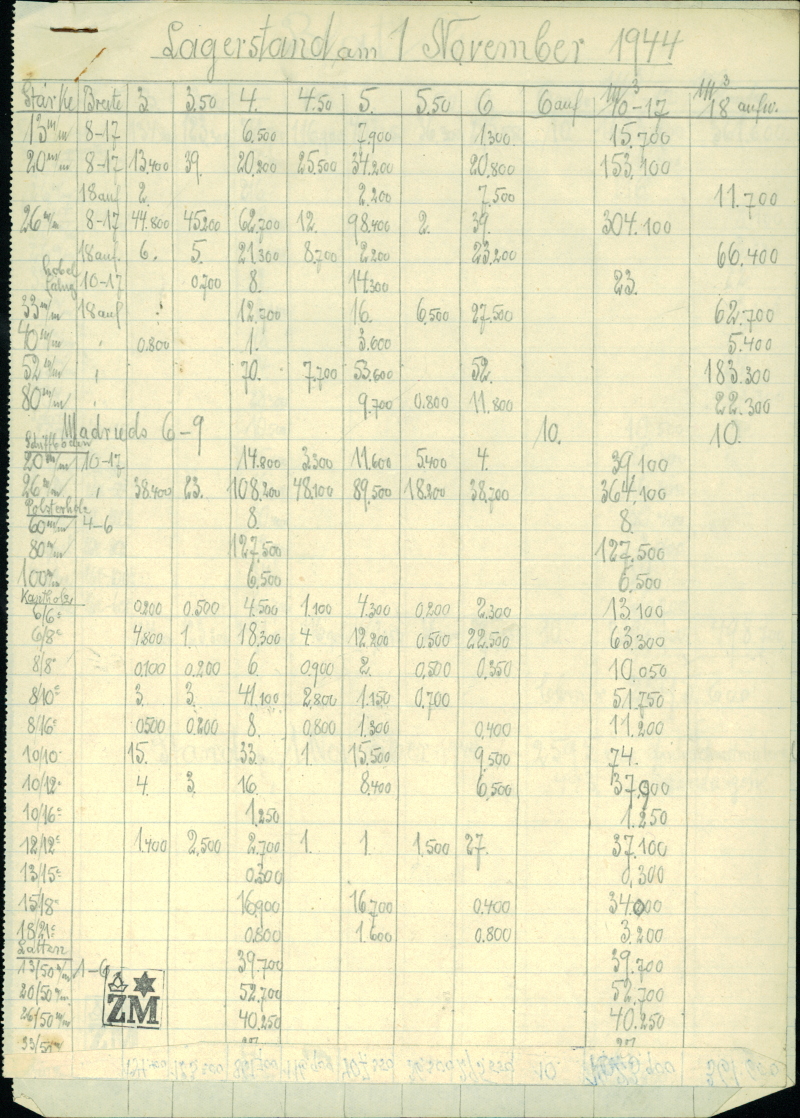 Lagerstand am 1 November 1944
Stärke Breite 3 3.50 4. 4.50 5. 5.50 6 6 auf m³ 10-17 m³ 18 aufw.
13 m/m 8-17 6.500 7.900 1.300 15.700
20 m/m 8-17 13.400 39. 20.200 25.500 34.200 20.800 153.100
18 auf 2. 2.200 7.500 11.700
26 m/m 8-17 44.800 45.200 62.700 12. 98.400 2. 39. 304.100
18 auf. 6. 5. 21.300 8.700 2.200 23.200 66.400
hobel
fähig 10-17 0.700 8. 14.300 23.
33 m/m 18 auf 12.700 16. 6.500 27.500 62.700
40 m/m " 0.800 1. 3.600 5.400
52 m/m " 70. 7.700 53.600 52. 183.300
80 m/m " 9.700 0.800 11.800 22.300
Madrieds 6-9 10. 10.
Schiffböden
20 m/m 10-17 14.800 3.300 11.600 5.400 4. 39.100
26 m/m " 38.400 23. 108.200 48.100 89.500 18.200 38.700 364.100
Polsterholz
60 m/m 4-6 8. 8.
80 m/m 127.500 127.500
100 m/m 6.500 6.500
Kantholz
6/6 0.200 0.500 4.500 1.100 4.300 0.200 2.300 13.100
6/8 4.800 1. 18.300 4 12.200 0.500 22.500 63.300
8/8 0.100 0.200 6 0.900 2. 0.500 0.350 10.050
8/10 3. 3. 41.100 2.800 1.150 0.700 51.750
8/16 0.500 0.200 8. 0.800 1.300 0.400 11.200
10/10 15. 33. 1 15.500 9.500 74.
10/12 4. 3. 16. 8.400 6.500 37.900
10/16 1.250 1.250
12/12 1.400 2.500 2.700 1. 1. 1.500 27. 37.100
13/15 0.300 0.300
15/18 16.900 16.700 0.400 34.000
18/21 0.800 1.600 0.800 3.200
Latten
13/50 m/m 1-6 39.700 39.700
20/50 m/m 52.700 52.700
ŽM
26/50 m/m 40.250 40.250
33/50